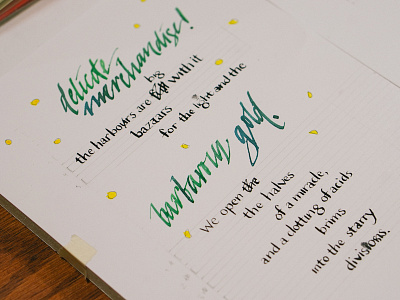 delicate
merchandise!
big
the harbours are with it
bazaars
for the light and the
barbarous gold.
We open
the halves
of a miracle,
and a clotting of acids
brims
into the starry
divisions.